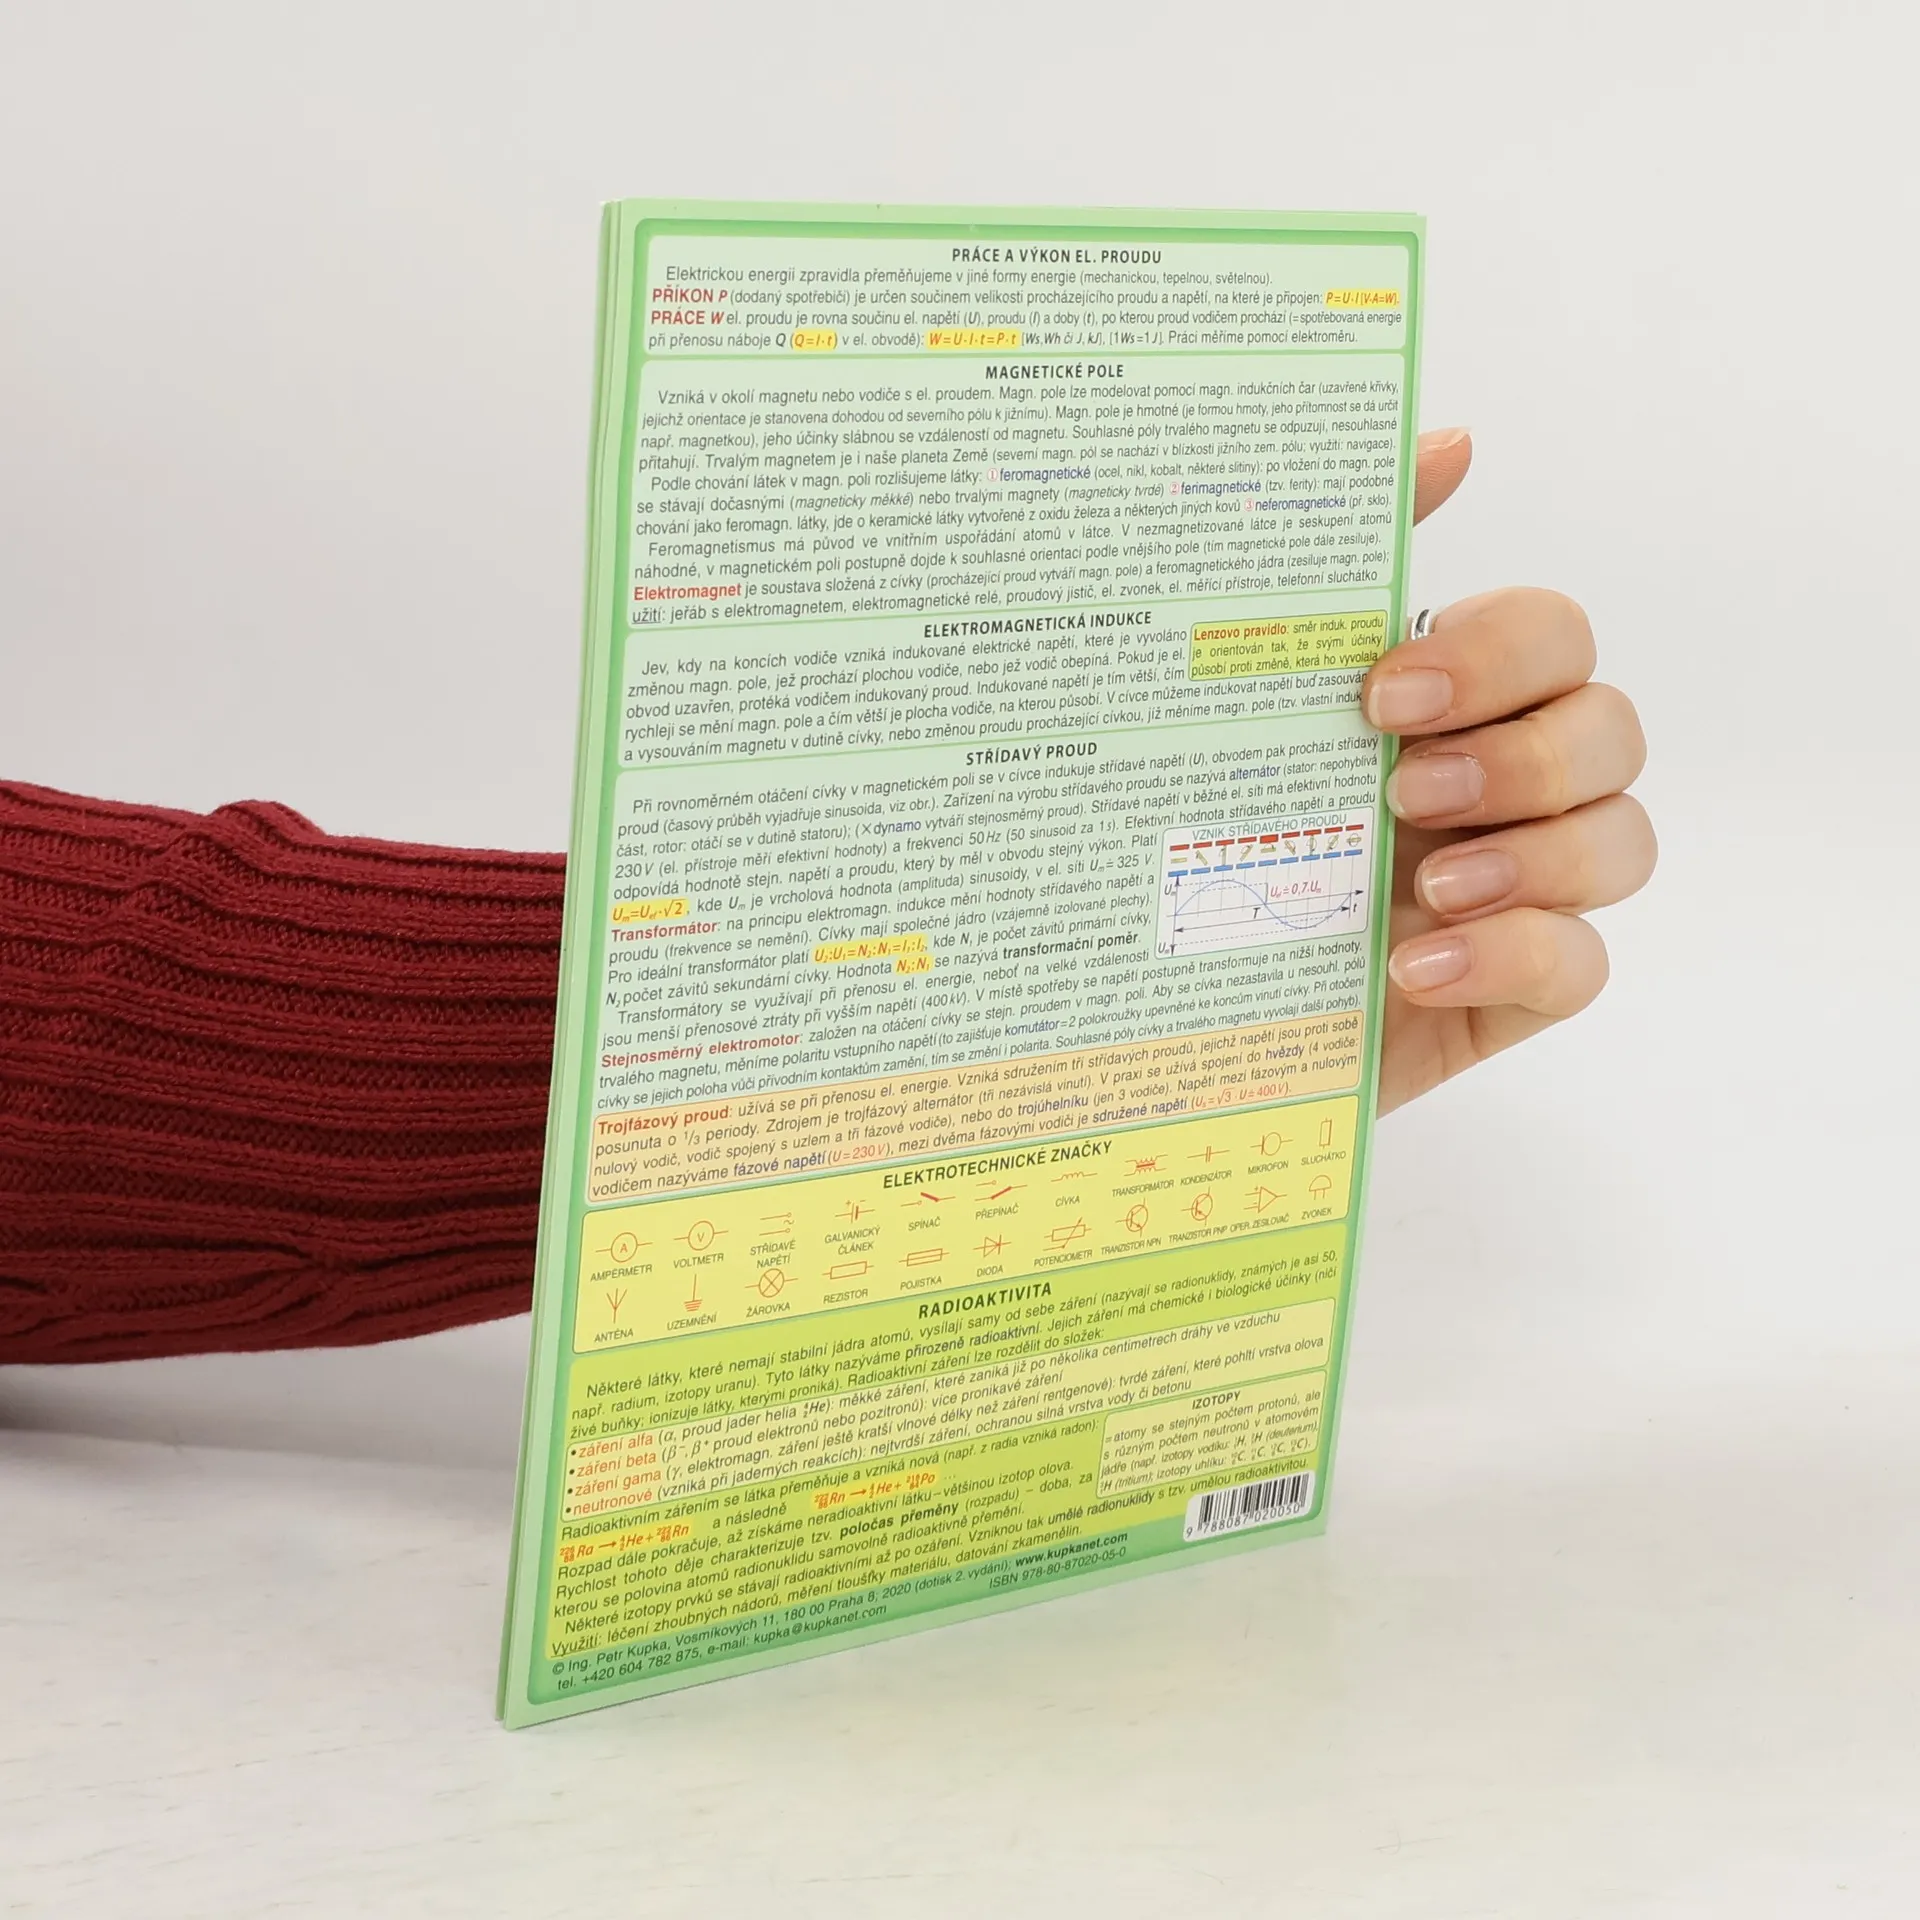 PRÁCE A VÝKON EL. PROUDU
Elektrickou energii zpravidla přeměňujeme v jiné formy energie (mechanickou, tepelnou, světelnou).
PŘÍKON P (dodaný spotřebiči) je určen součinem velikosti procházejícího proudu a napětí, na které je připojen: P=U·I [V·A=W].
PRÁCE W el. proudu je rovna součinu el. napětí (U), proudu (I) a doby (t), po kterou proud vodičem prochází (=spotřebovaná energie
při přenosu náboje Q (Q=I·t) v el. obvodě): W=U·I·t=P·t [Ws,Wh či J, kJ], [1Ws=1J]. Práci měříme pomocí elektroměru.
MAGNETICKÉ POLE
Vzniká v okolí magnetu nebo vodiče s el. proudem. Magn. pole lze modelovat pomocí magn. indukčních čar (uzavřené křivky,
jejichž orientace je stanovena dohodou od severního pólu k jižnímu). Magn. pole je hmotné (je formou hmoty, jeho přítomnost se dá určit
např. magnetkou), jeho účinky slábnou se vzdáleností od magnetu. Souhlasné póly trvalého magnetu se odpuzují, nesouhlasné
přitahují. Trvalým magnetem je i naše planeta Země (severní magn. pól se nachází v blízkosti jižního zem. pólu; využití: navigace).
Podle chování látek v magn. poli rozlišujeme látky: ① feromagnetické (ocel, nikl, kobalt, některé slitiny): po vložení do magn. pole
se stávají dočasnými (magneticky měkké) nebo trvalými magnety (magneticky tvrdé) ② ferimagnetické (tzv. ferity): mají podobné
chování jako feromagn. látky, jde o keramické látky vytvořené z oxidu železa a některých jiných kovů ③ neferomagnetické (př. sklo).
Feromagnetismus má původ ve vnitřním uspořádání atomů v látce. V nezmagnetizované látce je seskupení atomů
náhodné, v magnetickém poli postupně dojde k souhlasné orientaci podle vnějšího pole (tím magnetické pole dále zesiluje).
Elektromagnet je soustava složená z cívky (procházející proud vytváří magn. pole) a feromagnetického jádra (zesiluje magn. pole);
užití: jeřáb s elektromagnetem, elektromagnetické relé, proudový jistič, el. zvonek, el. měřící přístroje, telefonní sluchátko
ELEKTROMAGNETICKÁ INDUKCE
Jev, kdy na koncích vodiče vzniká indukované elektrické napětí, které je vyvoláno
změnou magn. pole, jež prochází plochou vodiče, nebo jež vodič obepíná. Pokud je el.
obvod uzavřen, protéká vodičem indukovaný proud. Indukované napětí je tím větší, čím
rychleji se mění magn. pole a čím větší je plocha vodiče, na kterou působí. V cívce můžeme indukovat napětí buď zasouván
a vysouváním magnetu v dutině cívky, nebo změnou proudu procházející cívkou, jíž měníme magn. pole (tzv. vlastní induk
Lenzovo pravidlo: směr induk. proudu
je orientován tak, že svými účinky
působí proti změně, která ho vyvolala.
STŘÍDAVÝ PROUD
Při rovnoměrném otáčení cívky v magnetickém poli se v cívce indukuje střídavé napětí (U), obvodem pak prochází střídavý
proud (časový průběh vyjadřuje sinusoida, viz obr.). Zařízení na výrobu střídavého proudu se nazývá alternátor (stator: nepohyblivá
část, rotor: otáčí se v dutině statoru); (✕dynamo vytváří stejnosměrný proud). Střídavé napětí v běžné el. síti má efektivní hodnotu
230V (el. přístroje měří efektivní hodnoty) a frekvenci 50Hz (50 sinusoid za 1s). Efektivní hodnota střídavého napětí a proudu
odpovídá hodnotě stejn. napětí a proudu, který by měl v obvodu stejný výkon. Platí
Um=Uef·√2, kde Um je vrcholová hodnota (amplituda) sinusoidy, v el. síti Um≐325 V.
Transformátor: na principu elektromagn. indukce mění hodnoty střídavého napětí a
proudu (frekvence se nemění). Cívky mají společné jádro (vzájemně izolované plechy).
Pro ideální transformátor platí U2:U1=N2:N1=I1:I2, kde N1 je počet závitů primární cívky,
N2 počet závitů sekundární cívky. Hodnota N2:N1 se nazývá transformační poměr.
Transformátory se využívají při přenosu el. energie, neboť na velké vzdálenosti
jsou menší přenosové ztráty při vyšším napětí (400kV). V místě spotřeby se napětí postupně transformuje na nižší hodnoty.
Stejnosměrný elektromotor: založen na otáčení cívky se stejn. proudem v magn. poli. Aby se cívka nezastavila u nesouhl. pólů
trvalého magnetu, měníme polaritu vstupního napětí (to zajišťuje komutátor=2 polokroužky upevněné ke koncům vinutí cívky. Při otočení
cívky se jejich poloha vůči přívodním kontaktům zamění, tím se změní i polarita. Souhlasné póly cívky a trvalého magnetu vyvolají další pohyb).
VZNIK STŘÍDAVÉHO PROUDU
Um
Uef≐0,7.Um
T
t
Um
Trojfázový proud: užívá se při přenosu el. energie. Vzniká sdružením tří střídavých proudů, jejichž napětí jsou proti sobě
posunuta o 1/3 periody. Zdrojem je trojfázový alternátor (tři nezávislá vinutí). V praxi se užívá spojení do hvězdy (4 vodiče:
nulový vodič, vodič spojený s uzlem a tři fázové vodiče), nebo do trojúhelníku (jen 3 vodiče). Napětí mezi fázovým a nulovým
vodičem nazýváme fázové napětí (U=230V), mezi dvěma fázovými vodiči je sdružené napětí (Us=√3·U≐400V).
ELEKTROTECHNICKÉ ZNAČKY
A
AMPÉRMETR
V
VOLTMETR
STŘÍDAVÉ
NAPĚTÍ
GALVANICKÝ
ČLÁNEK
SPÍNAČ
PŘEPÍNAČ
CÍVKA
TRANSFORMÁTOR
KONDENZÁTOR
MIKROFON
SLUCHÁTKO
ANTÉNA
UZEMNĚNÍ
ŽÁROVKA
REZISTOR
POJISTKA
DIODA
POTENCIOMETR
TRANZISTOR NPN
TRANZISTOR PNP
OPER. ZESILOVAČ
ZVONEK
RADIOAKTIVITA
Některé látky, které nemají stabilní jádra atomů, vysílají samy od sebe záření (nazývají se radionuklidy, známých je asi 50,
např. radium, izotopy uranu). Tyto látky nazýváme přirozeně radioaktivní. Jejich záření má chemické i biologické účinky (ničí
živé buňky; ionizuje látky, kterými proniká). Radioaktivní záření lze rozdělit do složek:
•záření alfa (α, proud jader helia 4 2He): měkké záření, které zaniká již po několika centimetrech dráhy ve vzduchu
•záření beta (β-, β+ proud elektronů nebo pozitronů): více pronikavé záření
•záření gama (γ, elektromagn. záření ještě kratší vlnové délky než záření rentgenové): tvrdé záření, které pohltí vrstva olova
•neutronové (vzniká při jaderných reakcích): nejtvrdší záření, ochranou silná vrstva vody či betonu
Radioaktivním zářením se látka přeměňuje a vzniká nová (např. z radia vzniká radon):
226 88Ra → 4 2He + 222 86Rn a následně 222 86Rn → 4 2He + 218 84Po ...
Rozpad dále pokračuje, až získáme neradioaktivní látku – většinou izotop olova.
Rychlost tohoto děje charakterizuje tzv. poločas přeměny (rozpadu) – doba, za
kterou se polovina atomů radionuklidu samovolně radioaktivně přemění.
Některé izotopy prvků se stávají radioaktivními až po ozáření. Vzniknou tak umělé radionuklidy s tzv. umělou radioaktivitou.
Využití: léčení zhoubných nádorů, měření tloušťky materiálu, datování zkamenělin.
IZOTOPY
=atomy se stejným počtem protonů, ale
s různým počtem neutronů v atomovém
jádře (např. izotopy vodíku: 1 1H, 2 1H (deuterium),
3 1H (tritium); izotopy uhlíku:
9 788087 020050
© Ing. Petr Kupka, Vosmíkových 11, 180 00 Praha 8; 2020 (dotisk 2. vydání); www.kupkanet.com
tel. +420 604 782 875, e-mail: kupka@kupkanet.com ISBN 978-80-87020-05-0